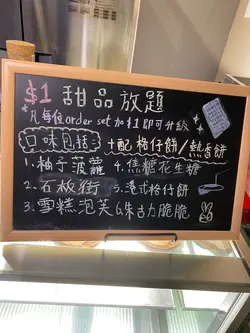 $1 甜品放題
*凡每位order set加$1即可升級
口味包括: +配格仔餅/熱香餅
1. 柚子菠蘿 4. 焦糖花生糖
2. 石板街 5. 港式格仔餅
3. 雪糕泡芙 6. 朱古力脆脆